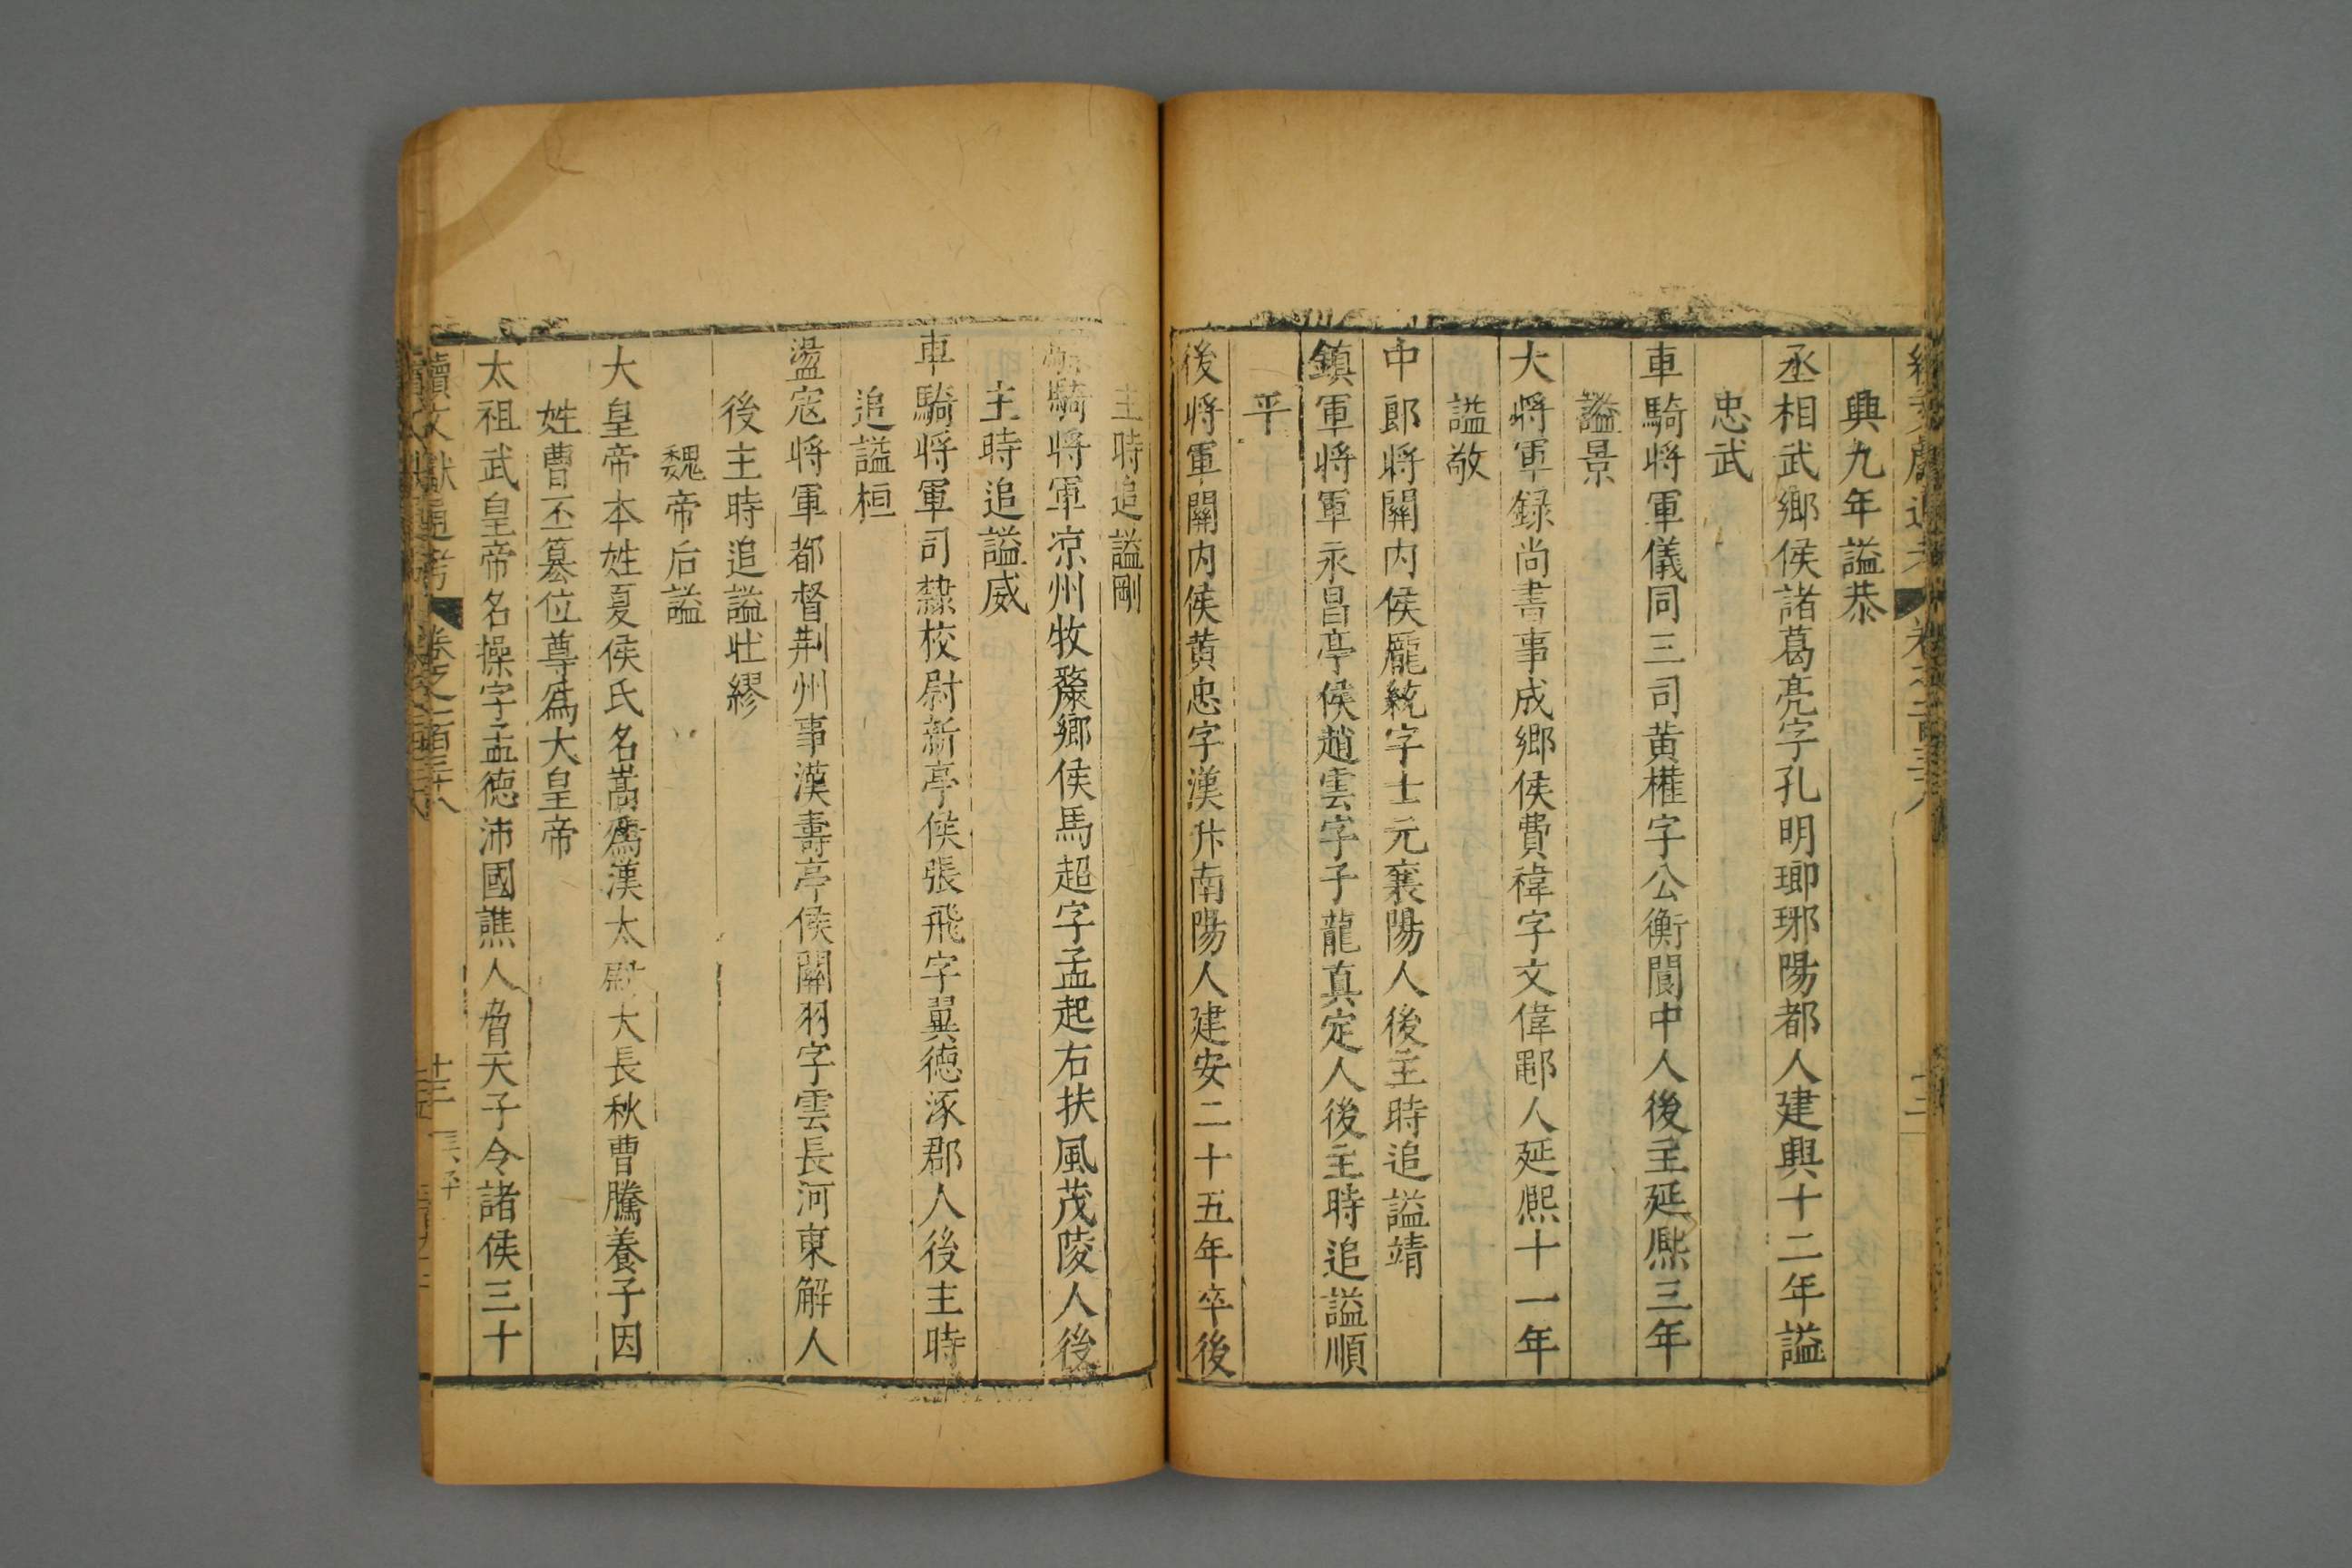 興九年謚恭
丞相武鄉侯諸葛亮字孔明瑯琊陽都人建興十二年謚
忠武
車騎将軍儀同三司黃權字公衡閬中人後主延熙三年
謚景
大将軍録尚書事成鄉侯費禕字文偉鄳人延熙十一年
謚敬
中郎将關内侯龐統字士元襄陽人後主時追謚靖
鎮軍将軍永昌亭侯趙雲字子龍真定人後主時追謚順
平
後将軍關内侯黃忠字漢升南陽人建安二十五年卒後
主時追謚剛
騎将軍凉州牧斄鄉侯馬超字孟起右扶風茂陵人後
主時追謚威
車騎将軍司隸校尉新亭侯張飛字翼徳涿郡人後主時
追謚桓
盪宼将軍都督荆州事漢壽亭侯關羽字雲長河東解人
後主時追謚壯繆
魏帝后謚
大皇帝本姓夏侯氏名嵩爲漢太尉大長秋曹騰養子因
姓曹丕簒位尊爲大皇帝
太祖武皇帝名操字孟徳沛國譙人脅天子令諸侯三十
續文獻通考 卷之一百三十八